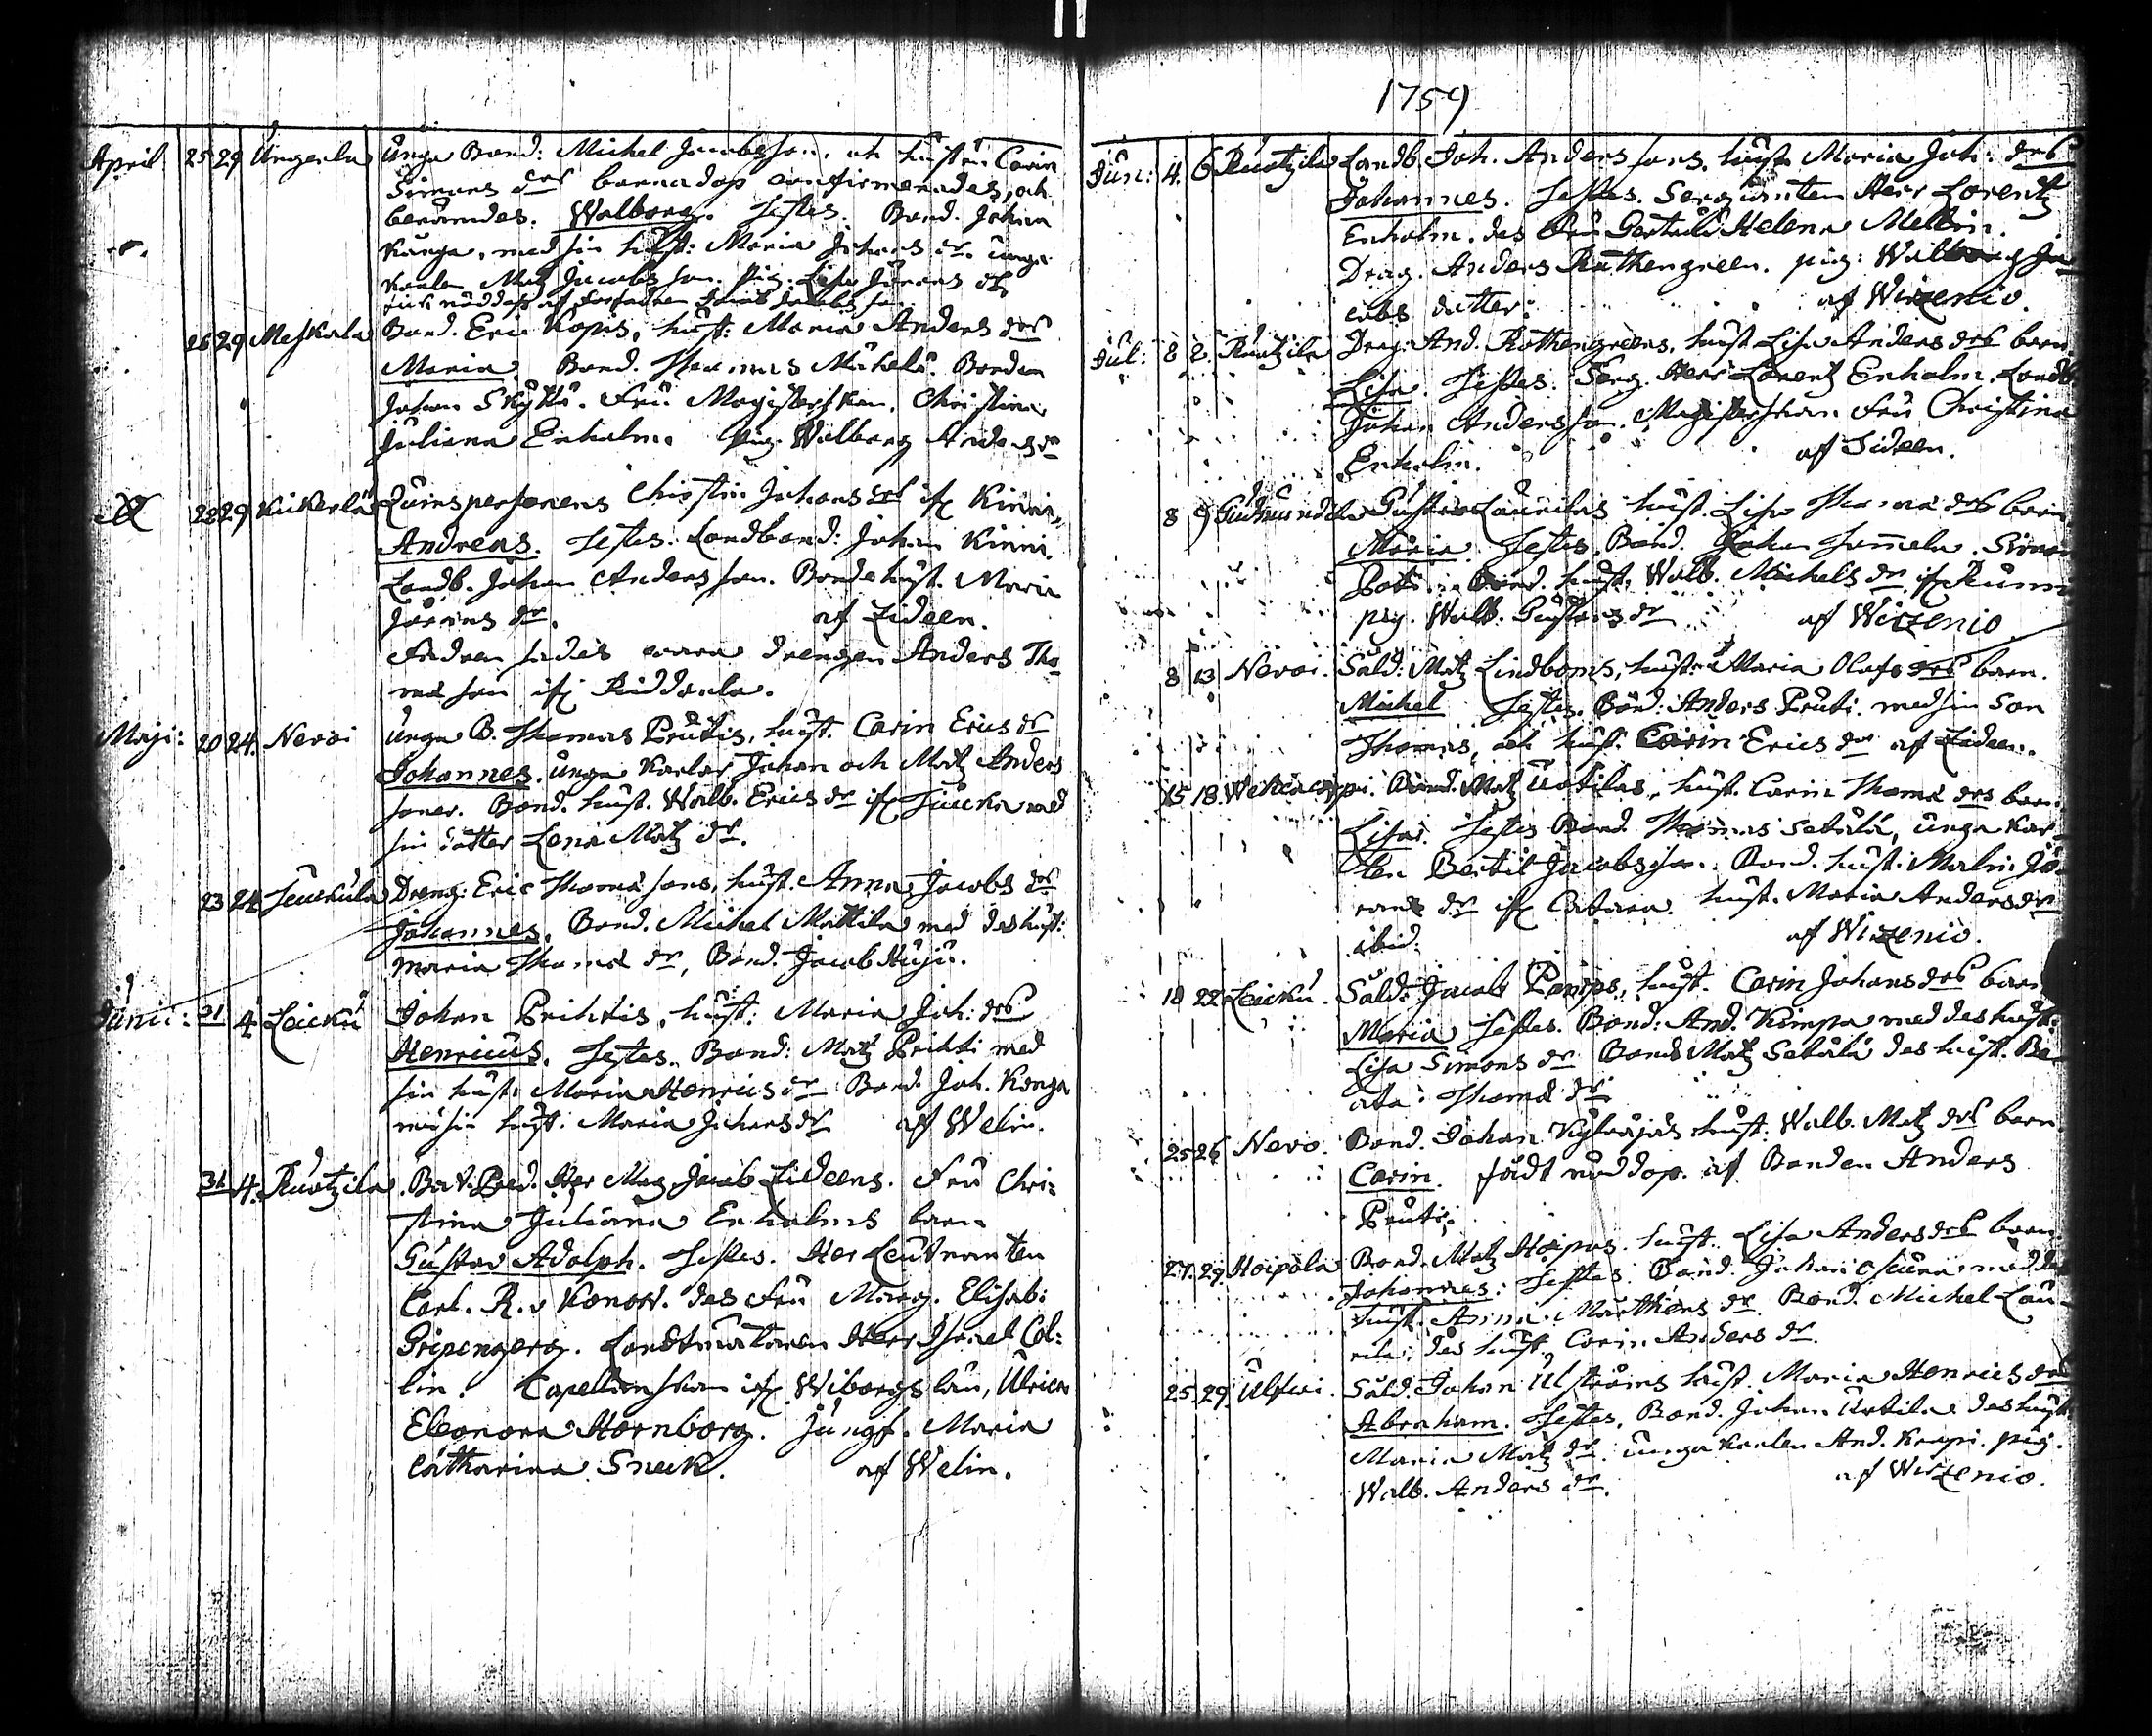 April 25 29 Ungerla Unga Bond: Michel Jacobsson, och hustrun Carin
Simons drs barnadop confirmerades, och
berömdes. Walborg. Testes. Bond. Johan
Kånga, med sin hust: Maria Johans dr. unga
Karlen Matz Jacobsson. pig. Lisa Jörans dr
fick nöddop af
26 29 Meskala Bond. Eric Kopis, hust: Maria Anders drs
Maria. Bond. Thomas Mickelä. Bonden
Johan Skyttä. Fru Magisterskan. Christina
Juliana Enholm. pig. Walborg Anders dr
28 29 Kickerlä Qvinspersonens Christin Johans drs ifr. Kinni,
Andreas. Testes. Landbond: Johan Kinni.
Landb. Johan Andersson. Bondehust. Maria
Jörans dr. af Zideen.
Fadren sades vara drengen Anders Tho
mæson ifr.
Maji: 20 24. Nevoi Unga B. Thomas Prutis, hust. Carin Erics dr
Johannes. unga Karlar Johan och Matz Anders
soner. Bond. hust. Walb. Erics dr ifr. med
sin dotter Lena Matz dr.
23 24 Dreng: Eric Thomæ sons, hust. Anna Jacobs drs
Johannes. Bond. Michel Mattila med des hust:
Maria Thomæ dr, Bond. Jacob Huju.
Junii: 31 4 Leickü Johan Prihtis, hust: Maria Joh: drs
Henricus. Testes. Bond: Matz Prihti med
sin hust: Maria Henrics dr Bond. Joh. Kånga
med sin hust. Maria Johans dr af Welin.
31 4. Ruotzila Bat. Pred. Her Mag. Jacob Zideens. Fru Chri-
stina Juliana Enholms barn
Gustav Adolph. Testes. Her Leutnanten
Carl. R. v Konow. des Fru Marg. Elisab:
Gripenberg. Landtmätaren Herr Israel Col:
lin. Capellanskan ifr. Wiborgs län, Ulrica
Eleonora Hornborg. Jungf. Maria
Catharina Sneck. af Welin.
1759
Jun: 4. 6 Ruotzila Landb. Joh. Anderssons, hust. Maria Joh: drs
Johannes. Testes. Sergianten Herr Lorentz
Enholm. des Fru Gertrud Helena Mellin.
Drag. Anders Ruthengreen. pig: Walborg Ja
cobs dotter. af Wirzenio.
Jul: 8 2. Ruotzila Drag: And. Rothengreens, hust. Lisa Anders drs barn.
Lisa. Testes: Serg. Herr Lorentz Enholm. Landb
Johan Andersson. Magisterskan Fru Christina
Enholm. af Sideen.
8 9 Gudmundila Gustav Laurilas hust. Lisa Thomæ drs barn
Maria. Testes. Bond. Johan Sameli. Simon
Bond. hust. Walb. Michels dr ifr.
pig. Walb. Gustavs dr af Wirzenio
8 13 Nevoi. Sold: Matz Lindboms, hustru Maria Olofs drs barn.
Michel Testes. Bond: Anders Pruti. med sin son
Thomas, och hust. Carin Erics dr af Zideen.
15 18 Bond. Matz Uotilas, hust. Carin Thomæ drs barn
Lisa. Testes Bond. Thomas Setälä, unga Kar-
len Bertil Jacobsson. Bond. hust: Malin Jö-
rans dr ifr. Catara. hust. Maria Anders dr
ibid. af Wirzenio.
18 22 Leickü. Sold: Jacob Pamps, hust. Carin Johans drs barn
Maria Testes. Bond: And. Kimpa med des hust:
Lisa Simons dr Bond Matz Setälä des hust. Be-
ata Thomæ dr
25 26 Nevo. Bond. Johan Kyläjäs hust. Walb. Matz drs barn.
Carin. fådt nöddop. af Bonden Anders
Pruti.
27. 29. Hoipola Bond. Matz Hoipos. hust. Lisa Anders drs barn.
Johannes. Testes. Bond. Johan med des
hust. Anna Marthens dr Bond. Michel Lau-
rila. des hust. Carin Anders dr.
25. 29. Sold. Johan Ulströms hust. Maria Henrics drs
Abraham. Testes, Bond. Johan Uotila des hust
Maria Matz dr. unga Karlen And. Krapi. pig.
Walb. Anders dr. af Wirzenio.